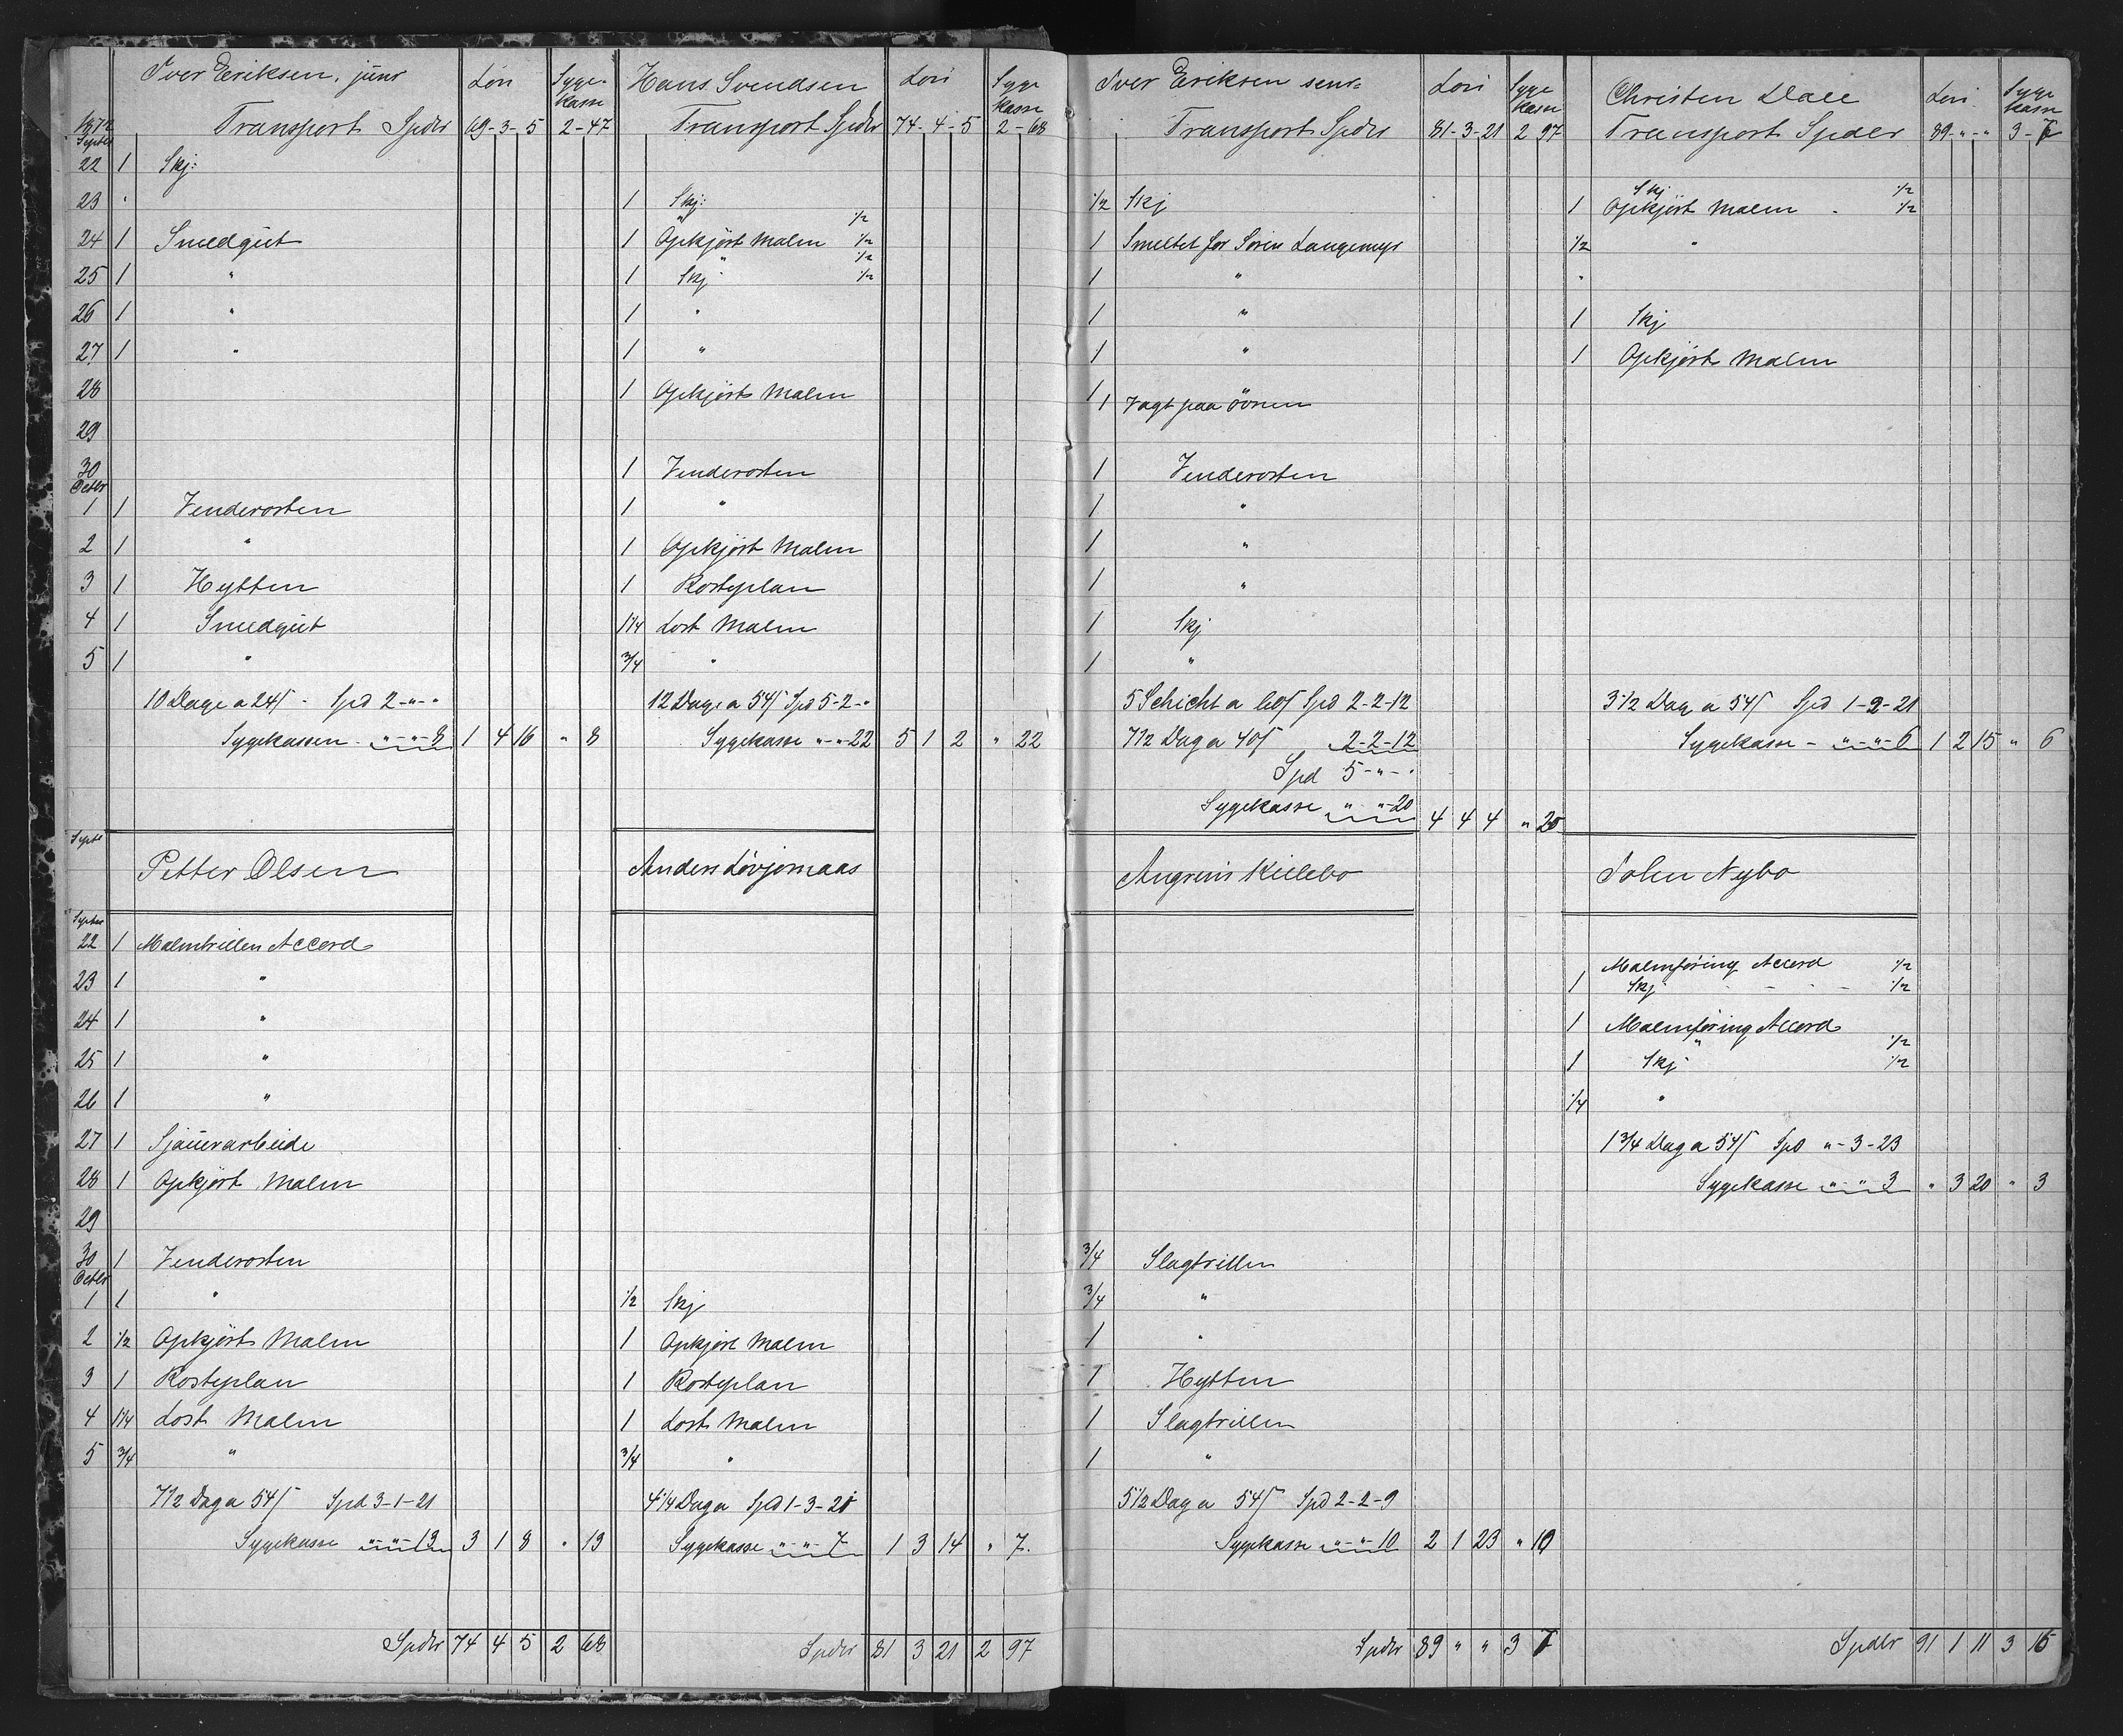 Iver Eriksen, junr Lön Syge-
kasse
1872 Transport Spdlr 69-3-5 2-47
Septbr
22 1 Skj:
23 "
24 1 Smedgut
25 1 "
26 1 "
27 1 "
28
29
30
Octbr
1 1 Venderosten
2 1 "
3 1 Hytten
4 1 Smedgut
5 1 "
10 Dage a 24ß - Spd 2-"-"
Sygekassen - "-"-8 1 4 16 " 8
Septr
Petter Olsen
Septbr
22 1 Malmtrillen Accord
23 1 "
24 1 "
25 1 "
26 1 "
27 1 Sjauerarbeide
28 1 Opkjört Malm
29
30 1 Venderosten
Octbr
1 1 "
2 1/2 Opkjört Malm
3 1 Rosteplan
4 1 1/4 Lost Malm
5 3/4 "
7 1/2 Dag a 54ß Spd 3-1-21
Sygekasse "-"-13 3 1 8 " 13
Spdlr 74 4 5 2 68
Hans Svendsen Lön Syge
kasse
Transport Spdlr 74-4-5 2-68
1 Skj:
" 1/2
1 Opkjört Malm 1/2
" 1/2
1 Skj 1/2
1 "
1 "
1 Opkjört Malm
1 Venderosten
1 "
1 Opkjört Malm
1 Rosteplan
1 1/4 Lost Malm
3/4 "
12 Dage a 54ß Spd 5-2-"
Sygekasse "-"-22 5 1 2 " 22
Anders Lövjomaas
1/2 Skj
1 Opkjört Malm
1 Rosteplan
1 Lost Malm
3/4 "
4 1/4 Dag a Spd 1-3-21
Sygekasse "-"-7 1 3 14 " 7.
Spdlr 81 3 21 2 97
Iver Eriksen senr Lön Syge
kasse
Transport Spdlr 81-3-21 2 97
1/2 Skj
1 Smeltet for Sören Langemyr
1 "
1 "
1 "
1 1 Vagt paa Ovnen
1 Venderosten
1 "
1 "
1 "
1 Skj
1 "
5 Schicht a 60ß Spd 2-2-12
7 1/2 Dag a 40ß " 2-2-12
Spd 5-"-"
Sygekasse " "-20 4 4 4 " 20
Angrim Killebo
3/4 Slagtrillen
3/4 "
1 "
1 Hytten
1 Slagtrillen
1 "
5 1/2 Dag a 54ß Spd 2-2-9
Sygekasse "-"-10 2 1 23 " 10
Spdlr 89 " " 3 7
Christen Dale Lön Syge
kasse
Transport Spdlr 89-"-" 3-7
Skj 1/2
1 Opkjört Malm - 1/2
1/2 "
"
1 Skj
1 Opkjört Malm
3 1/2 Dag a 54ß Spd 1-2-21
Sygekasse - "-"-6 1 2 15 " 6
John Nybo
Malmföring Accord 1/2
1 Skj - - - 1/2
1 Malmföring Accord
" 1/2
1 Skj 1/2
1/4 "
1 3/4 Dag a 54ß Spd "-3-23
Sygekasse "-"-3 " 3 20 " 3
Spdlr 91 1 11 3 16